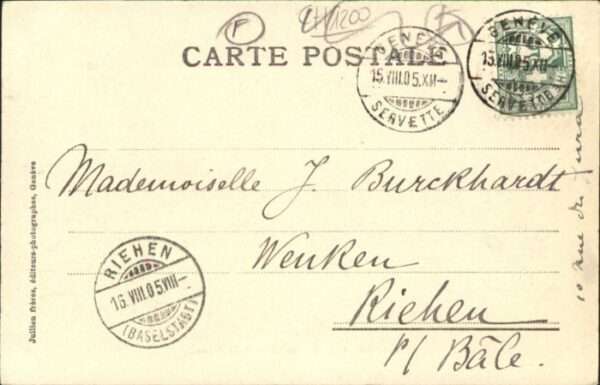 CH 1200
CARTE POSTALE
GENÈVE
15.VIII.05.XII-
SERVETTE
GENÈVE
15.VIII.05.XII-
SERVETTE
Mademoiselle J. Burckhardt
Wenken
Riehen
p/ Bâle.
RIEHEN
16.VIII.05.VIII-
(BASELSTADT)
10 rue du Jura
Jullien frères, éditeurs-photographes, Genève